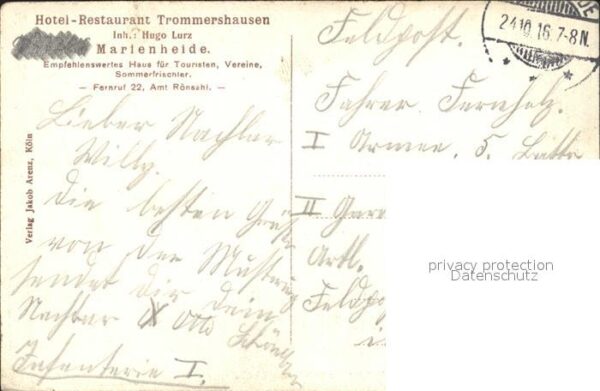 Hotel-Restaurant Trommershausen
Inh.: Hugo Lurz
Marienheide.
Empfehlenswertes Haus für Touristen, Vereine,
Sommerfrischler.
— Fernruf 22, Amt Rönsahl. —
Verlag Jakob Arenz, Köln
Lieber Nachbar
Willy.
Die besten Grüße
von der Musterung
sendet dir dein
Nachbar Otto
Infanterie I.
24.10.16.7-8N.
Feldpost.
Fahrer Fernholz.
I Armee. 5. Battr
II Gar
Artl.
Feldpo
privacy protection
Datenschutz